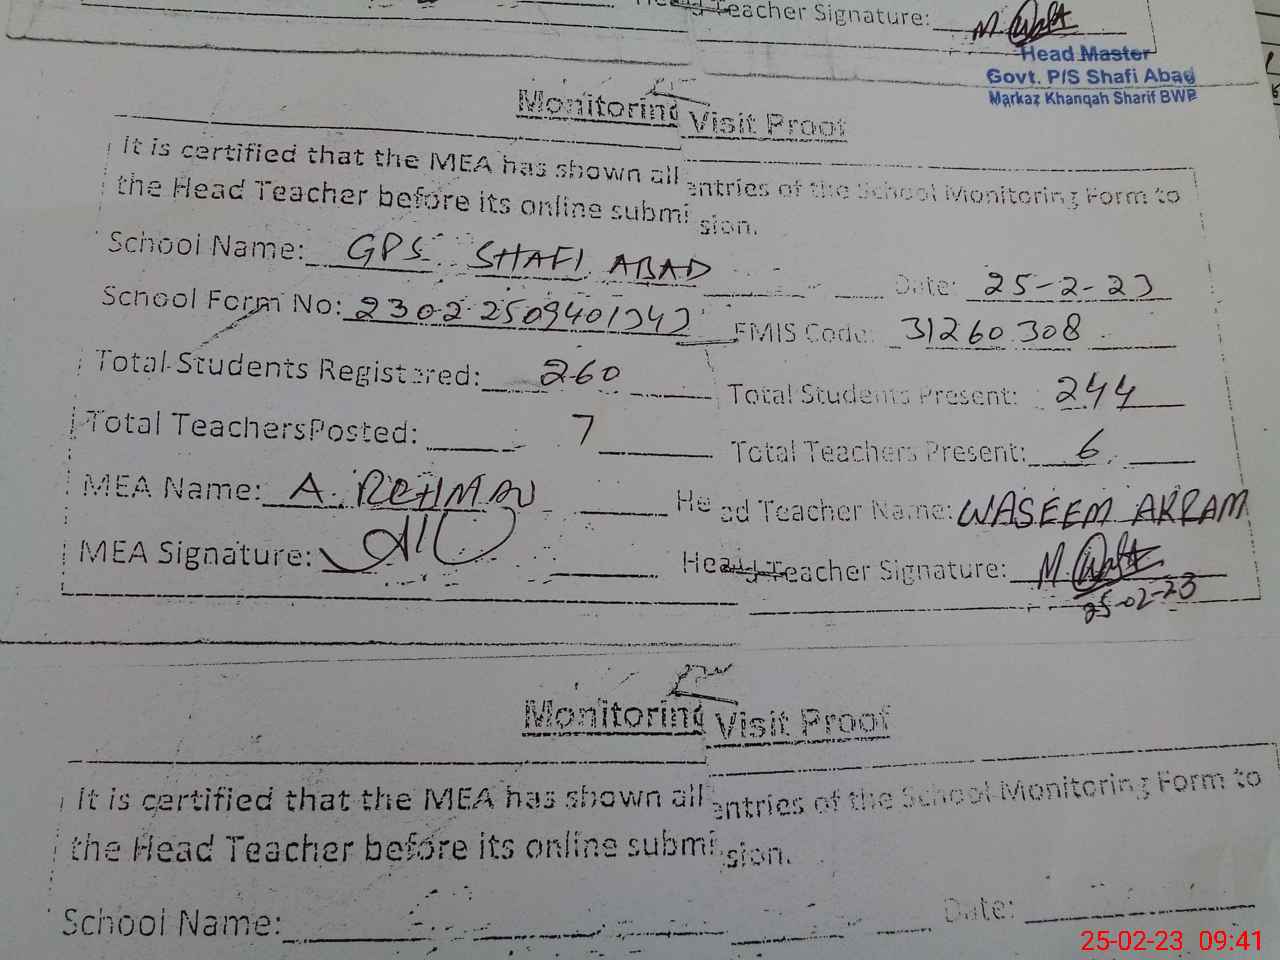 Head Teacher Signature: M. 
Head Master
Govt. P/S Shafi Abad
Markaz Khanqah Sharif BWP
Monitoring Visit Proof
It is certified that the MEA has shown all entries of the School Monitoring Form to
the Head Teacher before its online submission.
School Name: GPS SHAFI ABAD Date: 25-2-23
School Form No: EMIS Code: 31260308
Total Students Registered: 260 Total Students Present: 244
Total TeachersPosted: 7 Total Teachers Present: 6
MEA Name: A. REHMAN Head Teacher Name: WASEEM AKRAM
MEA Signature: Head Teacher Signature: M.
25-02-23
Monitoring Visit Proof
It is certified that the MEA has shown all entries of the School Monitoring Form to
the Head Teacher before its online submission.
School Name: Date:
25-02-23 09:41